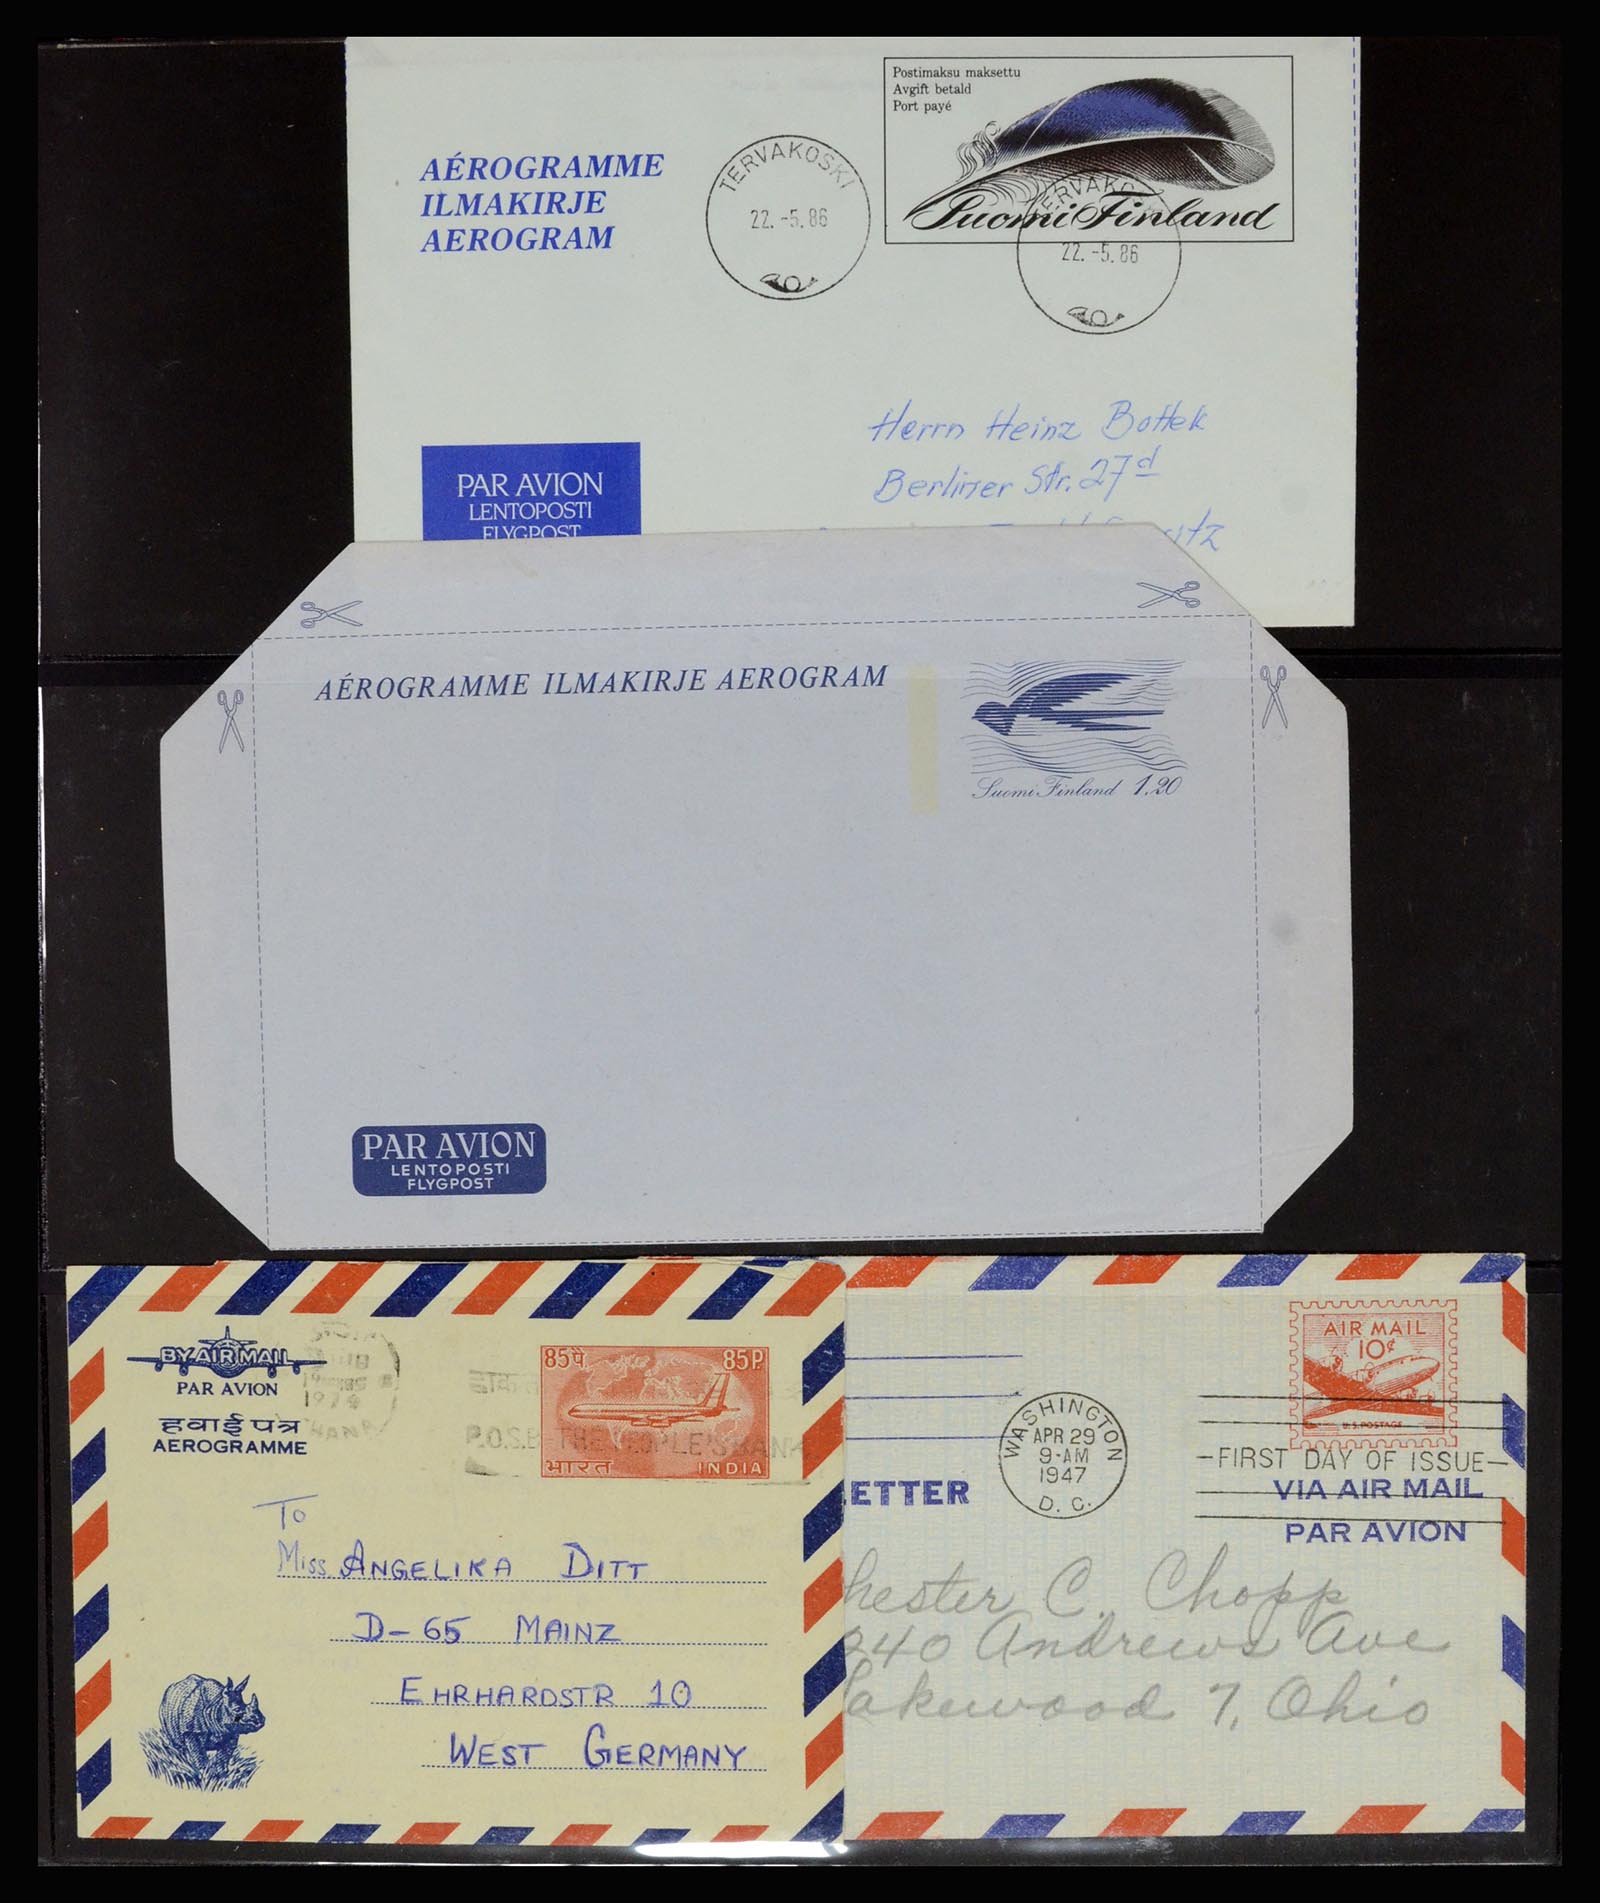 Postimaksu maksettu
Avgift betald
Port payé
AÉROGRAMME
ILMAKIRJE
AEROGRAM
TERVAKOSKI
22.-5.86
Suomi Finland
TERVAKO
22.-5.86
Herrn Heinz Bottek
Berliner Str. 27d
PAR AVION
LENTOPOSTI
FLYGPOST
AÉROGRAMME ILMAKIRJE AEROGRAM
Suomi Finland 1.20
PAR AVION
LENTOPOSTI
FLYGPOST
BY AIR MAIL
PAR AVION
हवाई पत्र
AEROGRAMME
1974
85पै 85P.
P.O.S.B THE PEOPLE'S BANK
भारत INDIA
To
Miss. ANGELIKA DITT
D-65 MAINZ
EHRHARDSTR 10
WEST GERMANY
AIR MAIL
10¢
U.S. POSTAGE
WASHINGTON
APR 29
9-AM
1947
D. C.
FIRST DAY OF ISSUE
ETTER
VIA AIR MAIL
PAR AVION
hester C. Chopp
240 Andrews Ave
akewood 7, Ohio